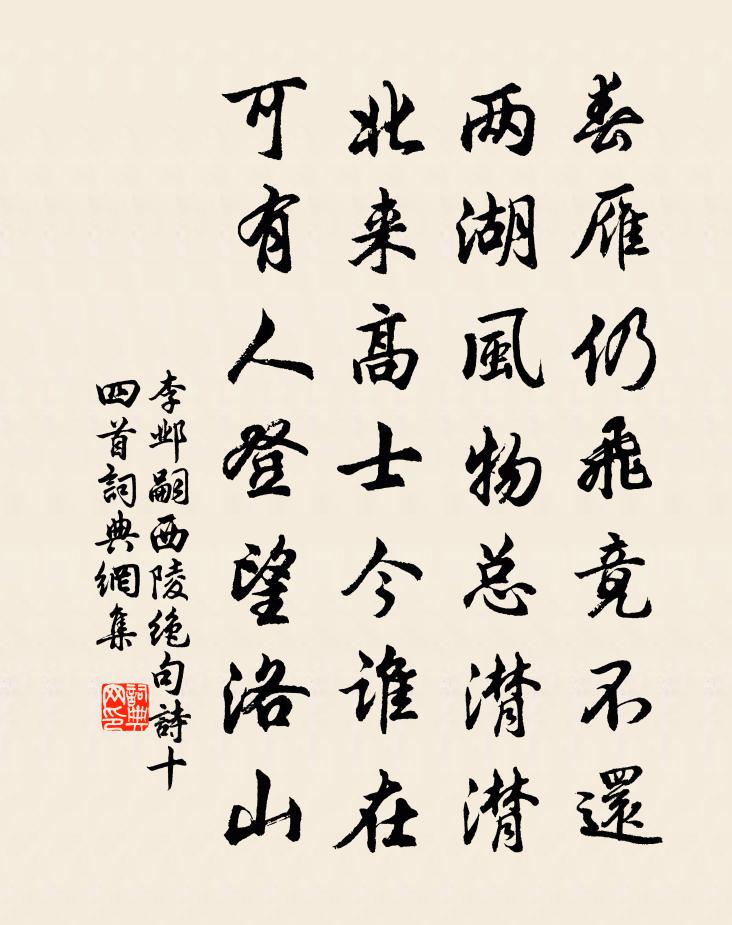 春雁仍飛竟不還
两湖風物总潸潸
北来高士今谁在
可有人登望洛山
李邺嗣西陵绝句詩十
四首詞典網集
詞典网印